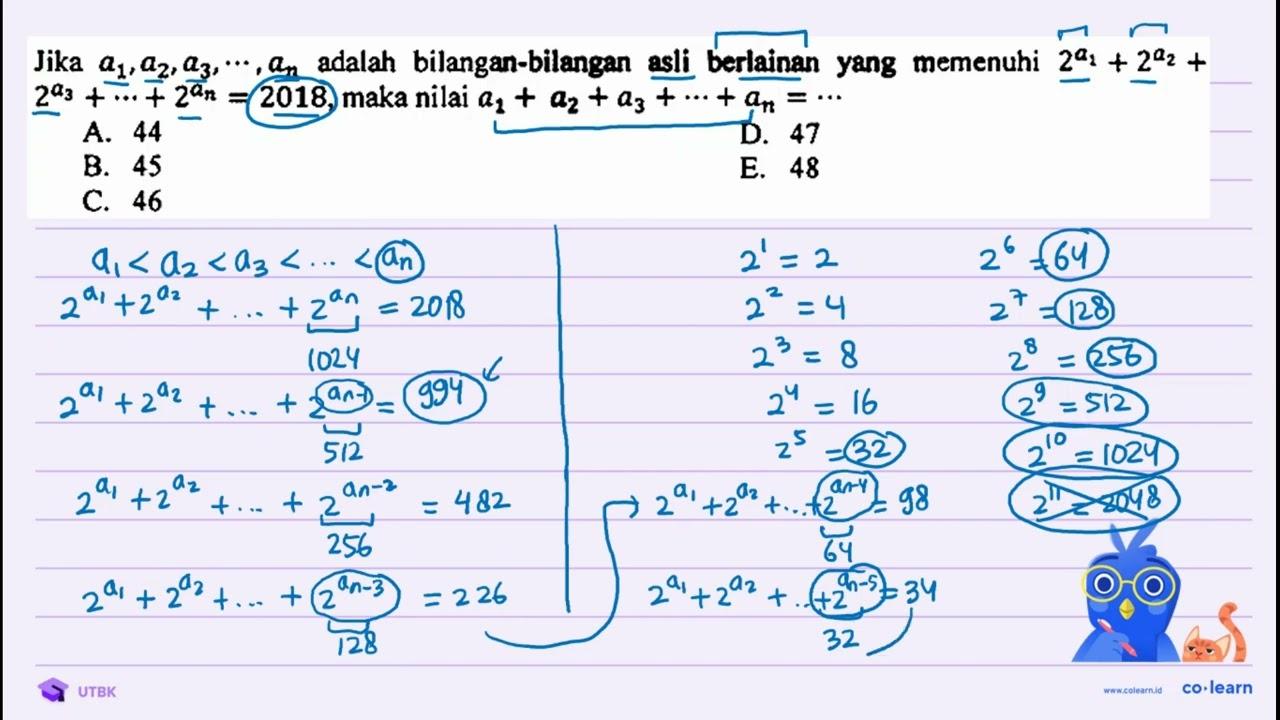 Jika a₁, a₂, a₃, ⋯, aₙ adalah bilangan-bilangan asli berlainan yang memenuhi 2^{a₁} + 2^{a₂} +
2^{a₃} + ⋯ + 2^{aₙ} = 2018, maka nilai a₁ + a₂ + a₃ + ⋯ + aₙ = ⋯
A. 44
B. 45
C. 46
D. 47
E. 48
a₁ < a₂ < a₃ < ... < aₙ
2^{a₁} + 2^{a₂} + ... + 2^{aₙ} = 2018
1024
2^{a₁} + 2^{a₂} + ... + 2^{aₙ₋₁} = 994
512
2^{a₁} + 2^{a₂} + ... + 2^{aₙ₋₂} = 482
256
2^{a₁} + 2^{a₂} + ... + 2^{aₙ₋₃} = 226
128
2¹ = 2
2² = 4
2³ = 8
2⁴ = 16
2⁵ = 32
2⁶ = 64
2⁷ = 128
2⁸ = 256
2⁹ = 512
2¹⁰ = 1024
2¹¹ = 2048
2^{a₁} + 2^{a₂} + ... + 2^{aₙ₋₄} = 98
64
2^{a₁} + 2^{a₂} + ... + 2^{aₙ₋₅} = 34
32
UTBK
www.colearn.id
co·learn